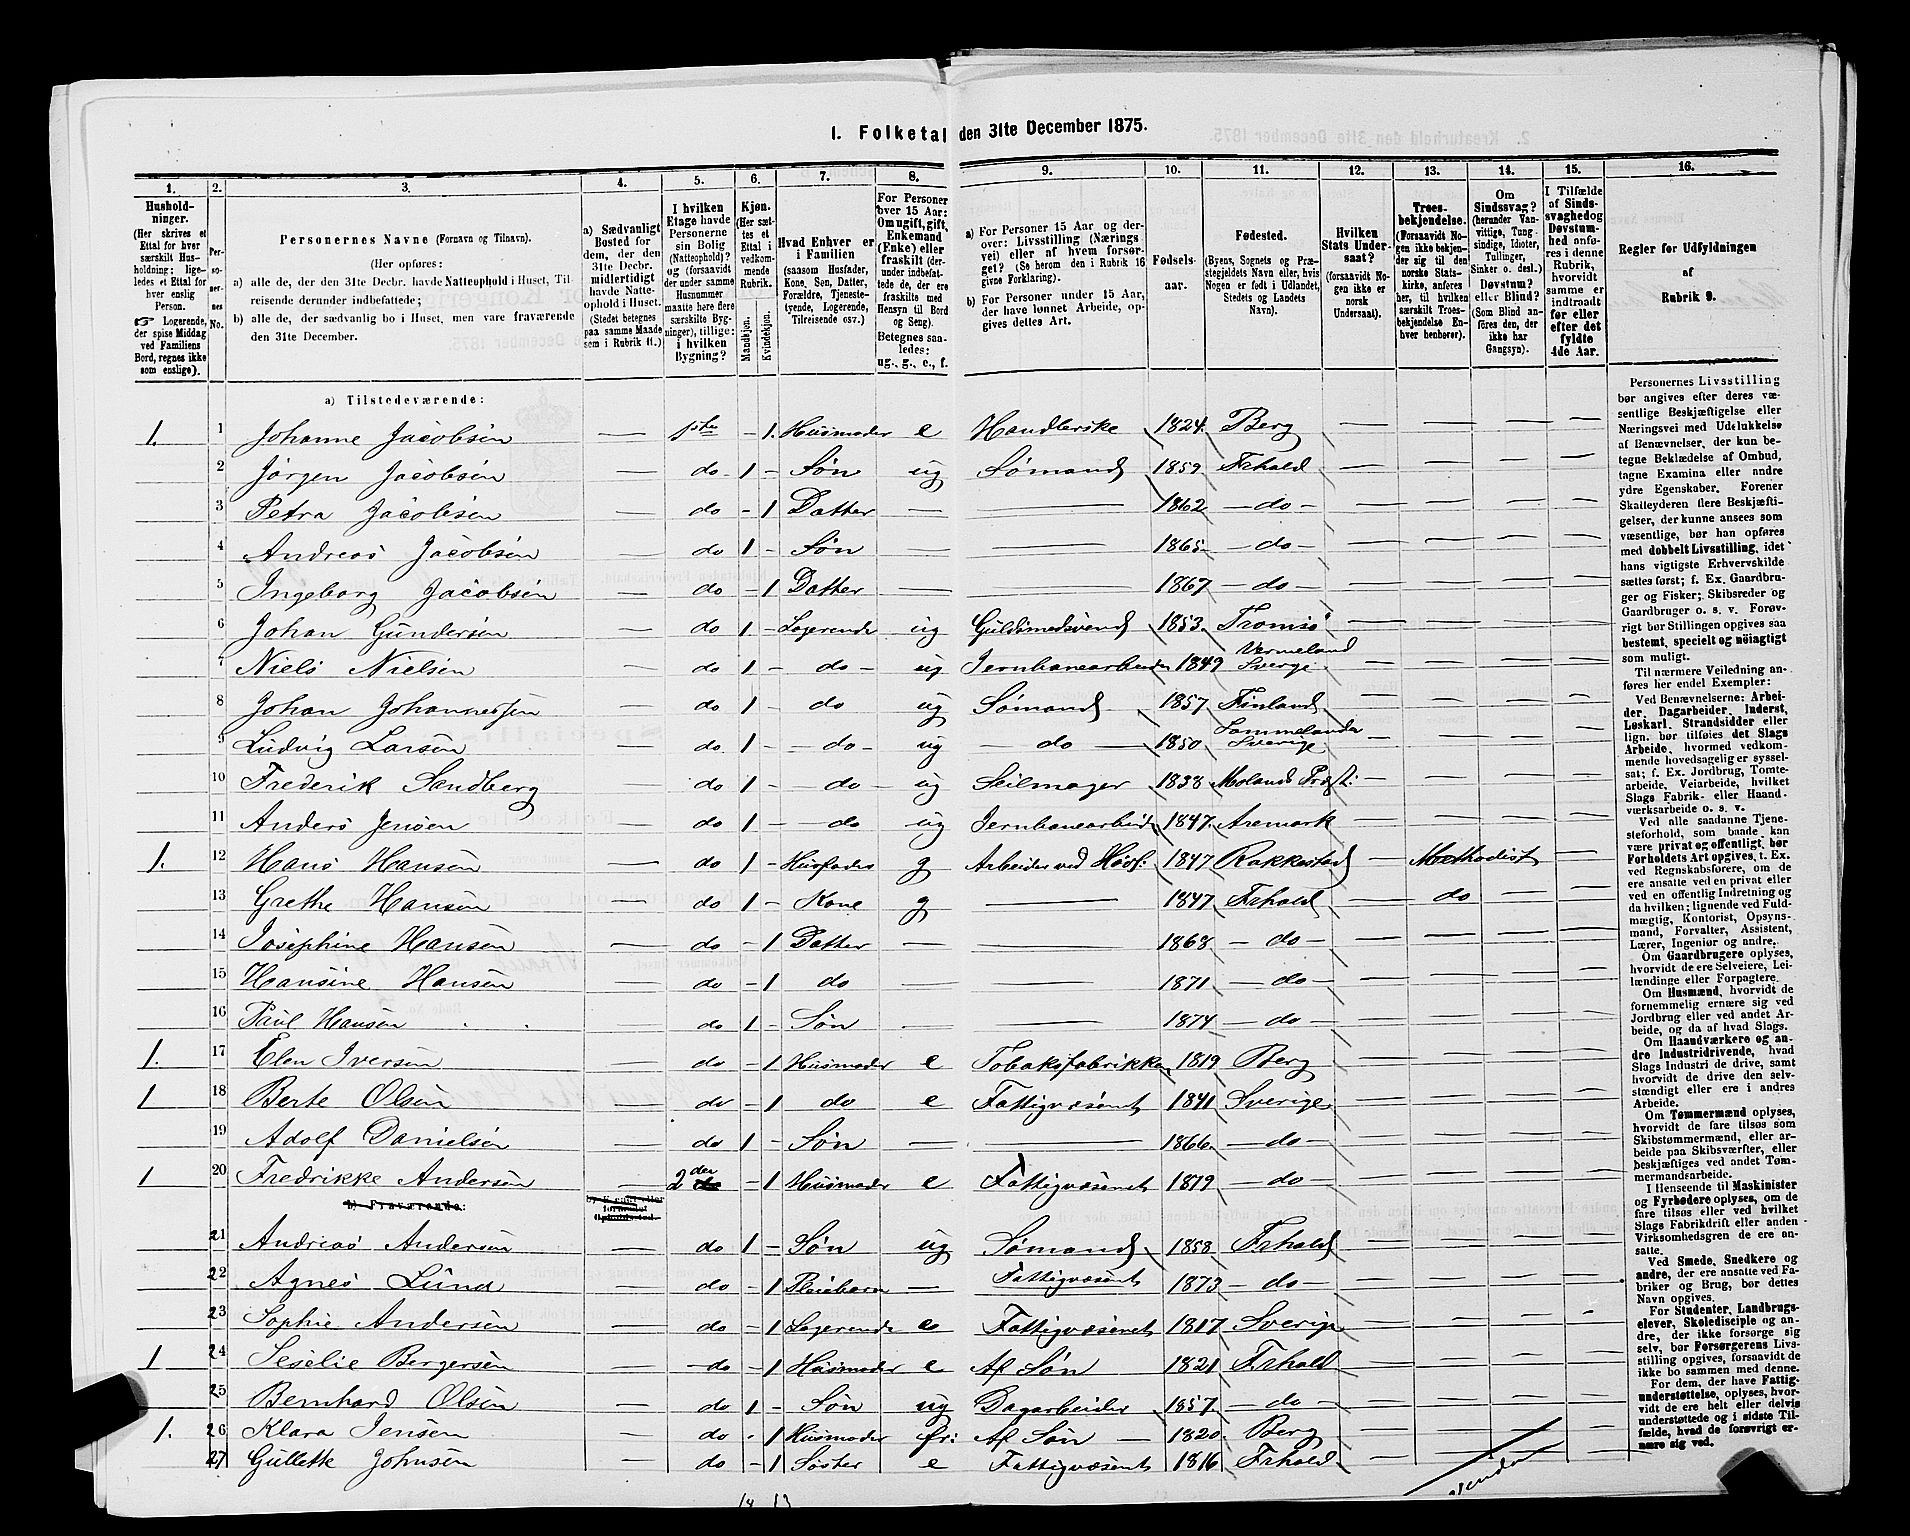 1. Folketal den 31te December 1875.
1. 2. 3. 4. 5. 6. 7. 8. 9. 10. 11. 12. 13. 14. 15. 16.
Hushold-
ninger.
(Her skrives et
Ettal for hver
særskilt Hus-
holdning; lige-
ledes et Ettal for
hver enslig
Person.
☞ Logerende,
der spise Middag
ved Familiens
Bord, regnes ikke
som enslige).
Per-
so-
ner-
nes
No.
Personernes Navne (Fornavn og Tilnavn).
(Her opføres:
a) alle de, der den 31te Decbr. havde Natteophold i Huset, Til-
reisende derunder indbefattede;
b) alle de, der sædvanlig bo i Huset, men vare fraværende
den 31te December.
a) Sædvanligt
Bosted for
dem, der den
31te Decbr.
midlertidigt
havde Natte-
ophold i Huset.
(Stedet betegnes
paa samme Maade
som i Rubrik 11.)
I hvilken
Etage havde
Personerne
sin Bolig
(Natteophold)?
og (forsaavidt
der under samme
Husnummer
maatte høre flere
særskilte Byg-
ninger), tillige:
i hvilken
Bygning?
Kjøn.
(Her sæt-
tes et
Ettal i
vedkom-
mende
Rubrik.
Mandkjøn.
Kvindekjøn.
Hvad Enhver er
i Familien
(saasom Husfader,
Kone, Søn, Datter,
Forældre, Tjeneste-
tyende, Logerende,
Tilreisende osv.)
For Personer
over 15 Aar:
Om ugift, gift,
Enkemand
(Enke) eller
fraskilt (der-
under indbefat-
tede de, der ere
fraskilte med
Hensyn til Bord
og Seng).
Betegnes saa-
ledes:
ug., g., e., f.
a) For Personer 15 Aar og der-
over: Livsstilling (Nærings
vei) eller af hvem forsør-
get? (Se herom den i Rubrik 16
givne Forklaring).
b) For Personer under 15 Aar,
der have lønnet Arbeide, op-
gives dettes Art.
Fødsels-
aar.
Fødested.
(Byens, Sognets og Præ-
stegjeldets Navn eller, hvis
Nogen er født i Udlandet,
Stedets og Landets
Navn).
Hvilken
Stats Under-
saat?
(forsaavidt No-
gen ikke er
norsk
Undersaat).
Troes-
bekjendelse.
(Forsaavidt No-
gen ikke bekjen-
der sig til den
norske Stats-
kirke, anføres
her, til hvilken
særskilt Troes-
bekjendelse En-
hver henhører).
Om
Sindssvag?
(herunder Van-
vittige, Tung-
sindige, Idioter,
Tullinger,
Sinker o. desl.)
Døvstum?
eller Blind?
(Som Blind an-
føres den, der
ikke har
Gangsyn).
I Tilfælde
af Sinds-
svaghed og
Døvstum-
hed anfø-
res i denne
Rubrik,
hvorvidt
samme er
indtraadt
før eller
efter det
fyldte
4de Aar.
Regler før Udfyldningen
af
Rubrik 9.
a) Tilstedeværende:
1. 1 Johanne Jacobsen — 1ste - 1. Husmoder e Handlerske 1824. Berg — — — —
2 Jørgen Jacobsen — do 1 - Søn ug Sømand 1859 Frhald — — — —
3 Petra Jacobsen — do - 1 Datter — — 1862 — do — — — — —
4 Andreas Jacobsen — do 1 - Søn — — 1865 — do — — — — —
5 Ingeborg Jacobsen — do - 1 Datter — — 1867 — do — — — — —
6 Johan Gundersen — do 1 - Logerende ug Guldsmedsvend 1853. Tromsø — — — —
7 Niels Nielsen — do 1 - — do — ug Jernbanearbeider 1849 Vermeland Sverge — — — —
8 Johan Johannessen — do 1 - do ug Sømand 1857 Finland — — — —
9 Ludvig Larsen — do 1 - — do — ug — do — 1850 Sverige — — — —
10 Frederik Sandberg — do 1 - — do — ug Seilmager 1838 Molands Præst: — — — —
11 Anders Jensen — do 1 - — do ug Jernbanearbeide 1847. Aremark — — — —
1. 12 Hans Hansen — do 1 - Husfader g Arbeider ved 1847 Rakkestad — Methodist — —
13 Grethe Hansen — do 1 - Kone g — 1847 Frhald — do — —
14 Josephine Hansen — do - 1 Datter — — 1868 — do — — — — —
15 Hansine Hansen — do - 1 do — — 1871 — do — — — — —
16 Paul Hansen — do 1 - Søn — — 1874 — do — — — — —
1. 17 Elen Iversen — do - 1 Husmoder e Tobaksfabrikken 1819 Berg — — — —
1 18 Berte Olsen — do - 1 do e Fattigvæsenet 1841 Sverige — — — —
19 Adolf Danielsen — do 1 - Søn — — 1866 — do — — — — —
1 20 Fredrikke Andersen — 2den do - 1 Husmoder e Fattigvæsenet 1819 — do — — — — —
b) Fraværende:
b) Kjendt eller
formodet
Opholdssted.
21 Andreas Andersen — do 1 - Søn ug Sømand 1858. Frhald — — — —
22 Agnes Lund — do - 1 Pleiebarn — Fattigvæsenet 1873 — do — — — — —
23 Sophie Andersen — do - 1 Logerende e Fattigvæsenet 1817 Sverige — — — —
1 24 Seselie Bergersen — do - 1 Husmoder e Af Søn 1821 Frhald — — — —
25 Bernhard Olsen — do 1 - Søn ug Dagarbeider 1857 — do — — — — —
1. 26 Klara Jensen — do - 1 Husmoder Af Søn — 1820. Berg — — — —
27 Gullette Johnsen — do - 1 Søster e Fattigvæsenet 1816 Frhald — — — —
Personernes Livsstilling
bør angives efter deres væ-
sentlige Beskjæftigelse eller
Næringsvei med Udelukkelse
af Benævnelser, der kun be-
tegne Beklædelse af Ombud,
tagne Examina eller andre
ydre Egenskaber. Forener
Skatteyderen flere Beskjæfti-
gelser, der kunne ansees som
væsentlige, bør han opføres
med dobbelt Livsstilling, idet
hans vigtigste Erhvervskilde
sættes først; f. Ex. Gaardbru-
ger og Fisker; Skibsreder og
Gaardbruger o. s. v. Forøv-
rigt bør Stillingen opgives saa
bestemt, specielt og nöiagtigt
som muligt.
Til nærmere Veiledning an-
føres her endel Exempler:
Ved Benævnelserne: Arbei-
der, Dagarbeider, Inderst,
Løskarl, Strandsidder eller
lign. bør tilføies det Slags
Arbeide, hvormed vedkom-
mende hovedsagelig er syssel-
sat; f. Ex. Jordbrug, Tomte-
arbeide, Veiarbeide, hvilket
Slags Fabrik- eller Haand-
værksarbeide o. s. v.
Ved alle saadanne Tjene-
steforhold, som baade kan
være privat og offentligt, bør
Forholdets Art opgives, t. Ex.
ved Regnskabsførere, om de
ere ansatte ved en privat eller
ved en offentlig Indretning og
da hvilken; lignende ved Fuld-
mægtig, Kontorist, Opsyns-
mand, Forvalter, Assistent,
Lærer, Ingeniør og andre.
Om Gaardbrugere oplyses,
hvorvidt de ere Selveiere, Lei-
lændinge eller Forpagtere.
Om Husmænd, hvorvidt de
fornemmelig ernære sig ved
Jordbrug eller ved andet Ar-
beide, og da af hvad Slags.
Om Haandværkere og an-
dre Industridrivende, hvad
Slags Industri de drive, samt
hvorvidt de drive den selv-
stændigt eller ere i andres
Arbeide.
Om Tømmermænd oplyses,
hvorvidt de fare tilsøs som
Skibstømmermænd, eller ar-
beide paa Skibsværfter, eller
beskjæftiges ved andet Tøm-
mermandsarbeide.
I Henseende til Maskinister
og Fyrbødere oplyses, om de
fare tilsøs eller ved hvilket
Slags Fabrikdrift eller anden
Virksomhedsgren de ere an-
satte.
Ved Smede, Snedkere og
andre, der ere ansatte ved Fa-
briker og Brug, bør dettes
Navn opgives.
For Studenter, Landbrugs-
elever, Skoledisciple og an-
dre, der ikke forsørge sig
selv, bør Forsørgerens Livs-
stilling opgives, forsaavidt de
ikke bo sammen med denne.
For dem, der have Fattig-
understøttelse, oplyses, hvor-
vidt de ere helt eller delvis
understøttede og i sidste Til-
fælde, hvad de forøvrigt er-
nære sig ved.
14 13